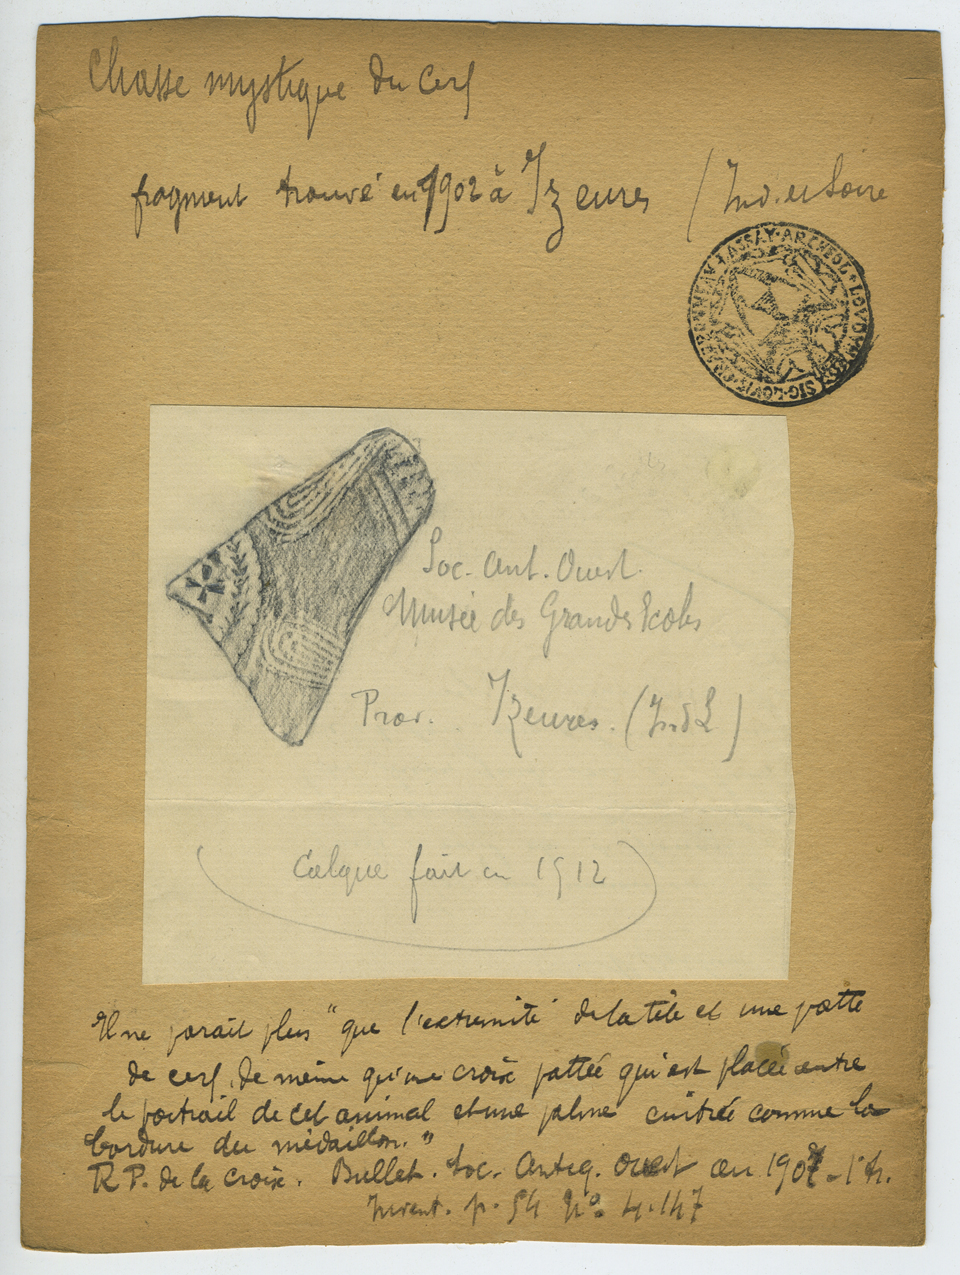 Chasse mystique du Cerf
fragment trouvé en 1902 à Yzeures (Ind. et Loire
ASSAY · ARCHEOL
SIG · LOVIS
Soc. Ant. Ouest.
Musée des Grandes Ecoles
Prov. Yzeures. (Ind L)
Calque fait en 1912
Il ne parait plus "que l'extremité de la tête et une patte
de cerf, de même qu'une croix pattée qui est placée entre
le poitrail de cet animal et une palme cintrée comme la
bordure du médaillon."
R.P. de la Croix. Bullet. Soc. Antiq. Ouest an. 1907 -
Invent. p. 54 No. 4.147